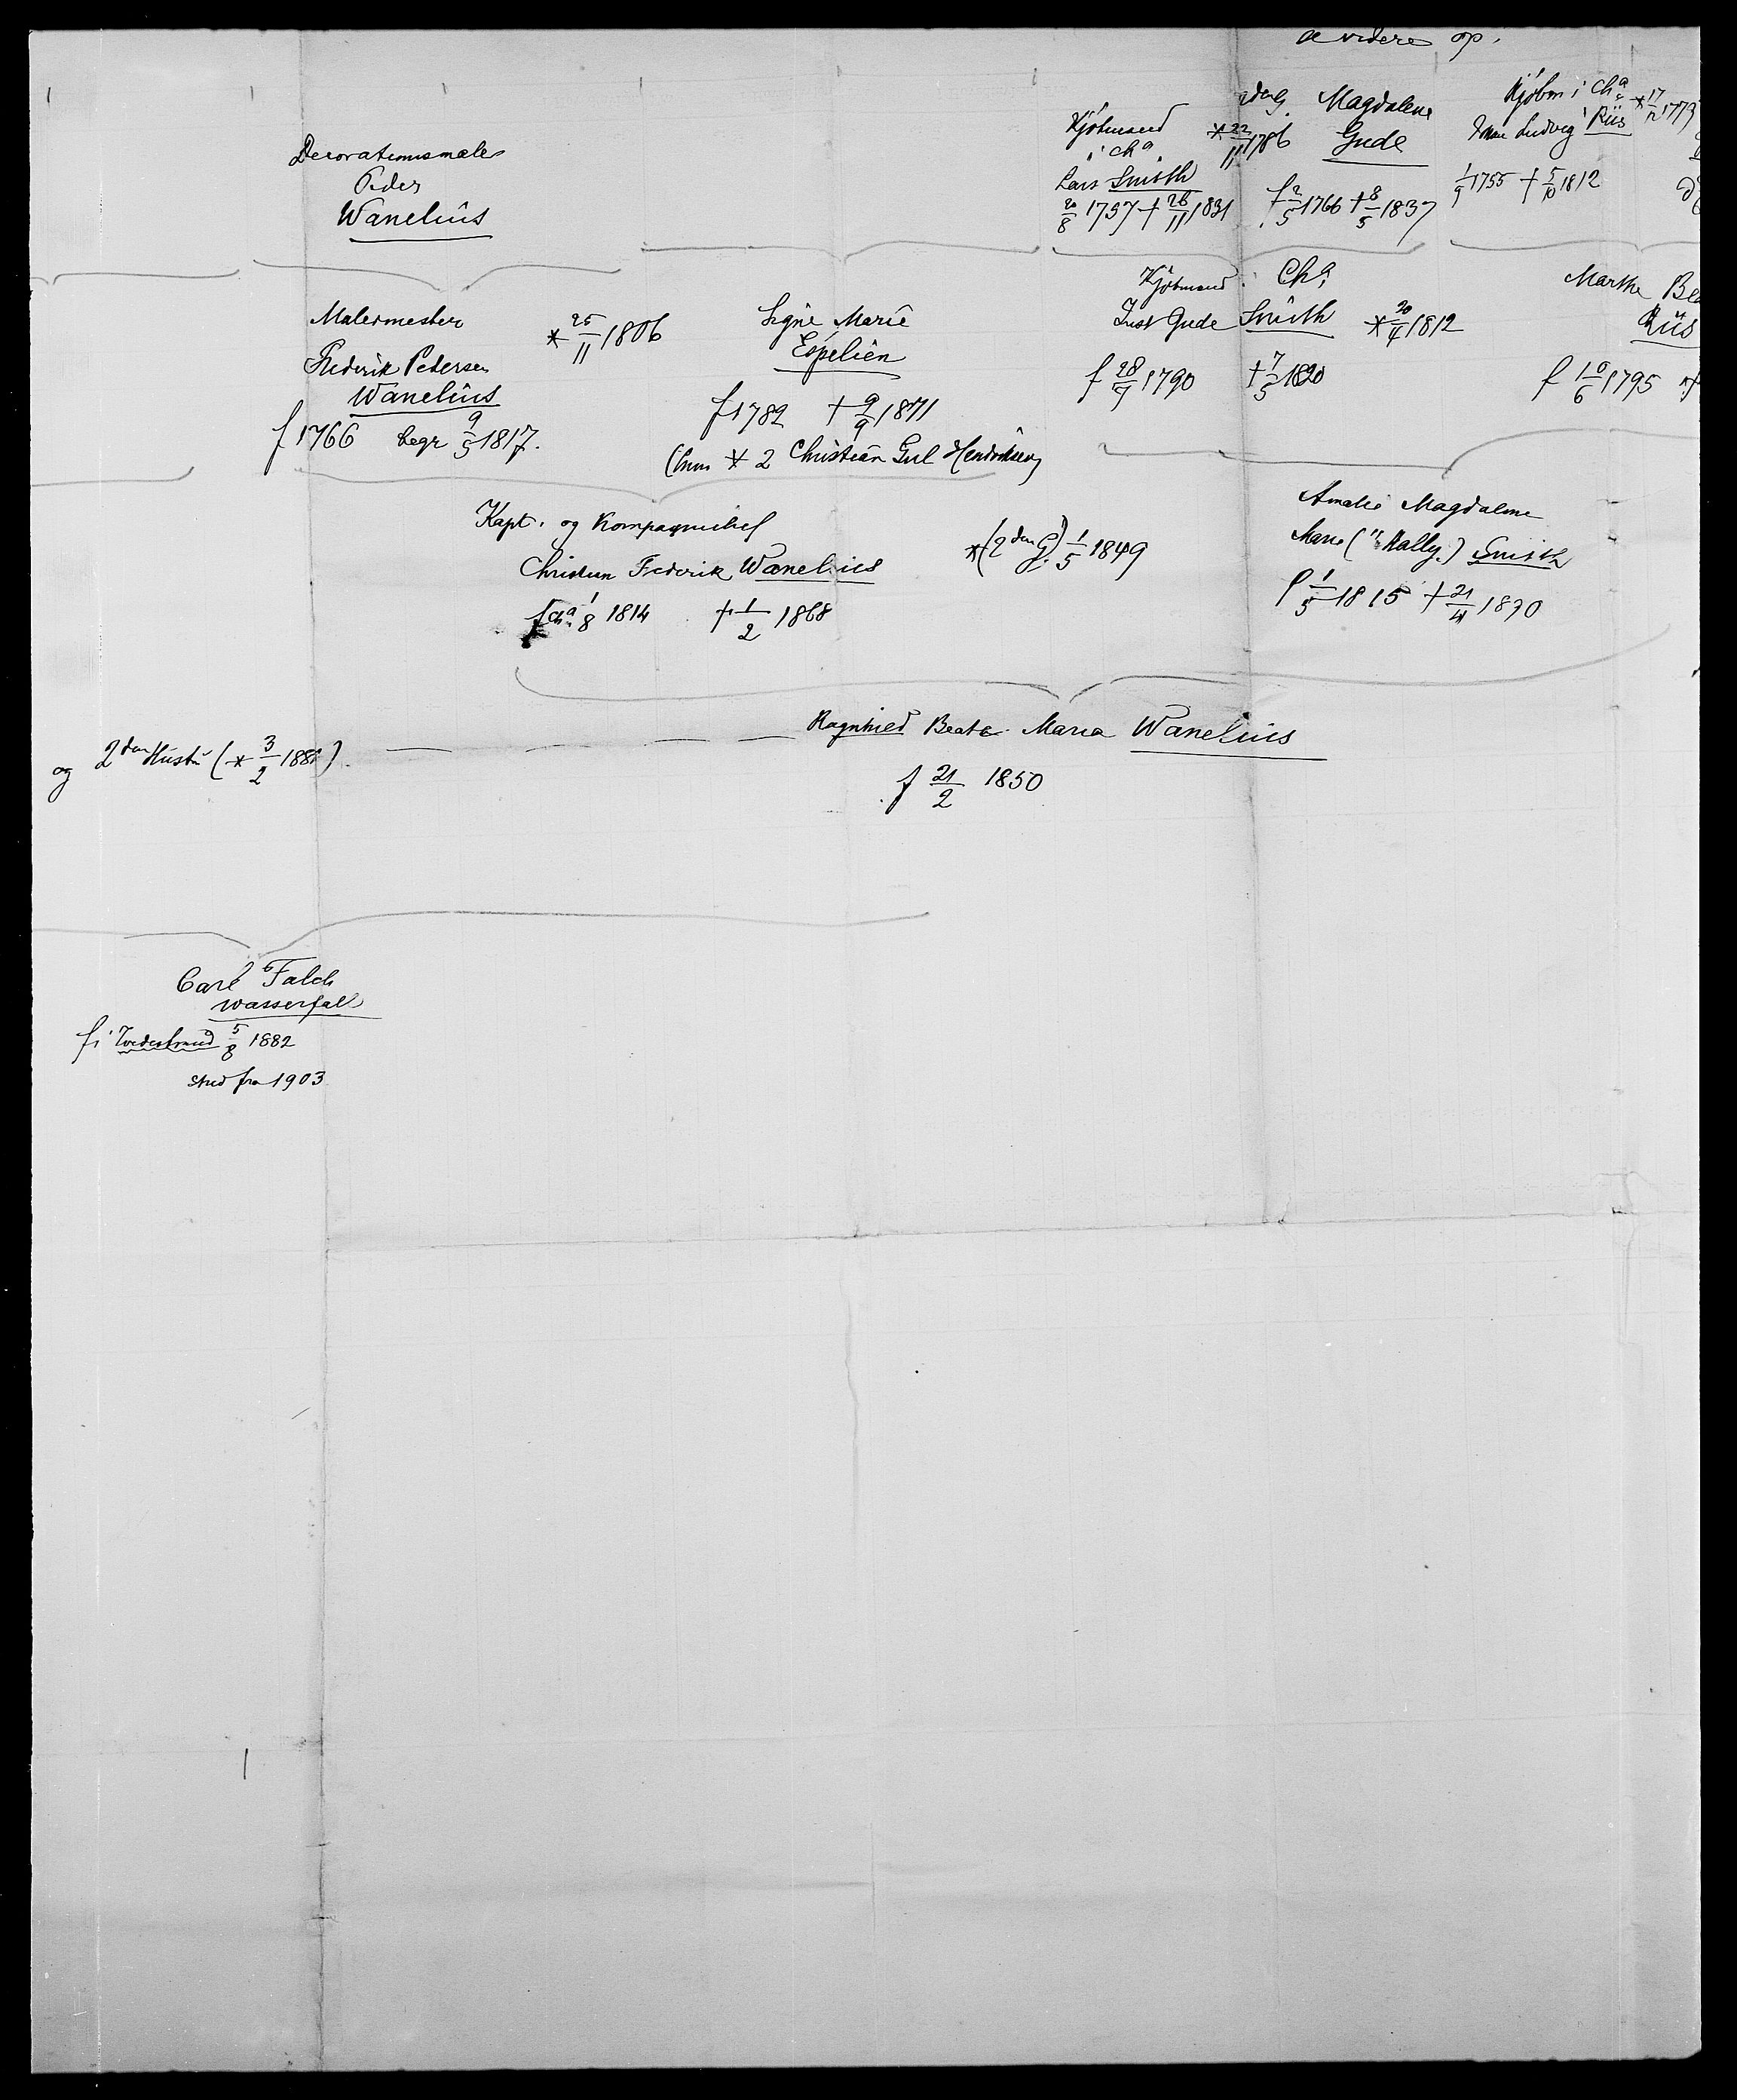 & videre op.
Decorationsmaler
Peder
Wanelius
Kjøbmand
i Chª
Lars Smith
20/8 1757 † 26/11 1831
* 22/11 1786
Magdalene
Gude
f 2/5 1766 † 8/5 1837
Kjøbm i Chª
Ludvig Riis
1/9 1755 † 5/10 1812
Malermester
Frederik Petersen
Wanelius
f 1766 begr 9/5 1817.
* 25/11 1806
Signe Marie
Espelien
f 1782 † 9/9 1871
(hun * 2 Christian Gul Hendriksen)
Kjøbmand i Chª
Just Gude Smith
f 28/9 1790
* 20/4 1812
Marthe Bea
Riis
f 10/6 1795
Kapt. og Kompagnichef
Christian Frederik Wanelius
f Chª 1/8 1814 † 1/2 1868
* (2den G.) 1/5 1849
Amalie Magdalene
Marie ( ) Smith
f 1/5 1815 † 21/4 1890
og 2den Hustru (* 3/2 1881).
Ragnhild Beate Maria Wanelius
f 21/2 1850
Carl Falch
Wasserfall
f i Tvedestrand 5/8 1882
stud fra 1903